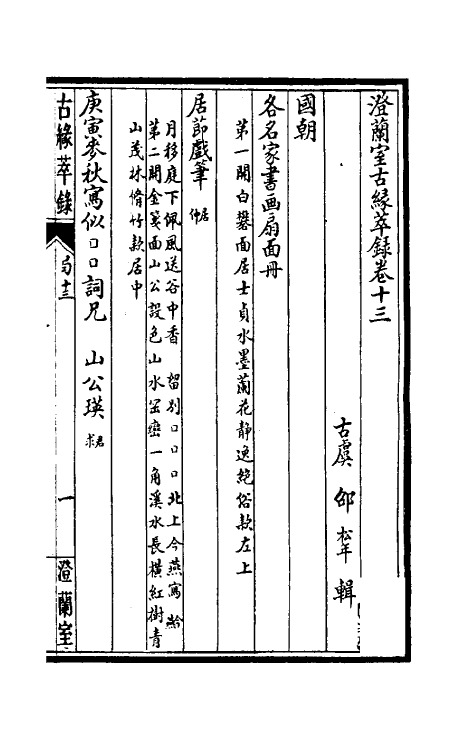 澄蘭室古緣萃錄卷十三
古虞 邵松年 輯
國朝
各名家書画扇面冊
第一開白礬面居士貞水墨蘭花靜逸絕俗款左上
居節戲筆 仲居
月移庭下佩風送谷中香 留別口口口北上今燕寫
第二開金箋面山公設色山水岊巒一角溪水長橫紅樹青
山茂林脩竹款居中
庚寅麥秋寫似口口詞兄 山公瑛 君求
古緣萃錄
卷十三
一
澄蘭室